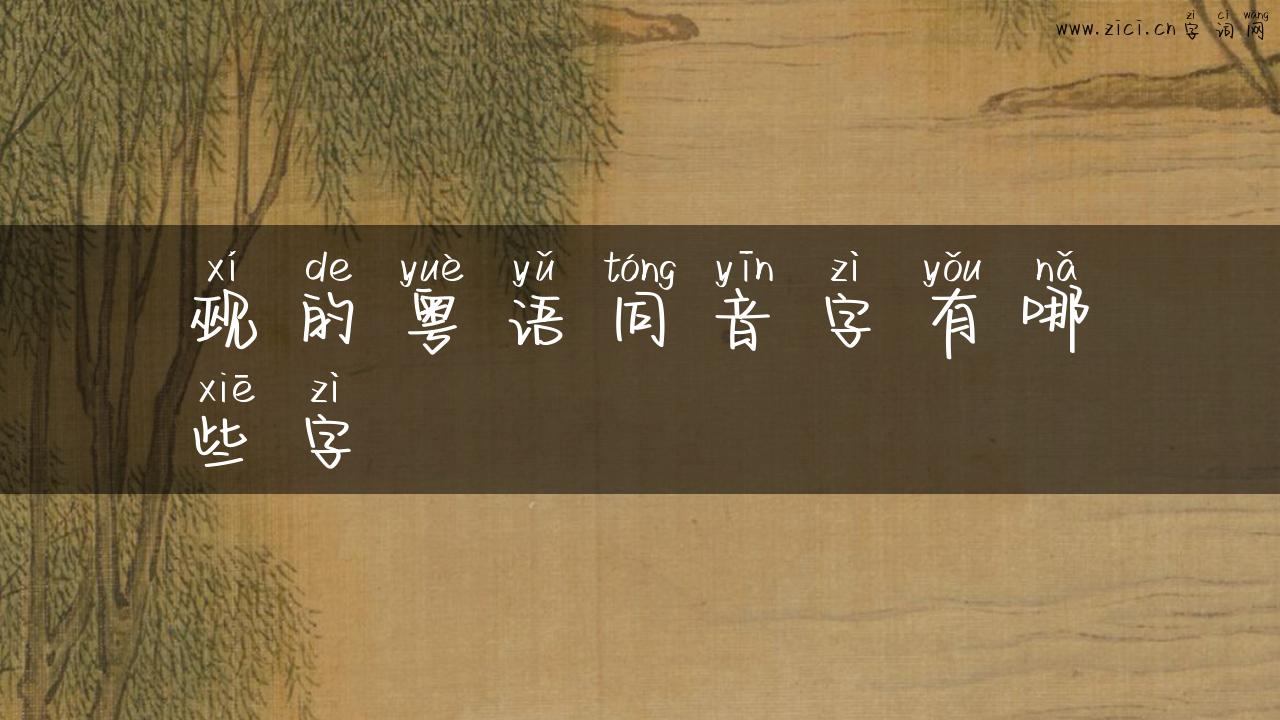 www.zici.cn 字词网
zì cí wǎng
xí de yuè yǔ tóng yīn zì yǒu nǎ
觋的粤语同音字有哪
xiē zì
些字